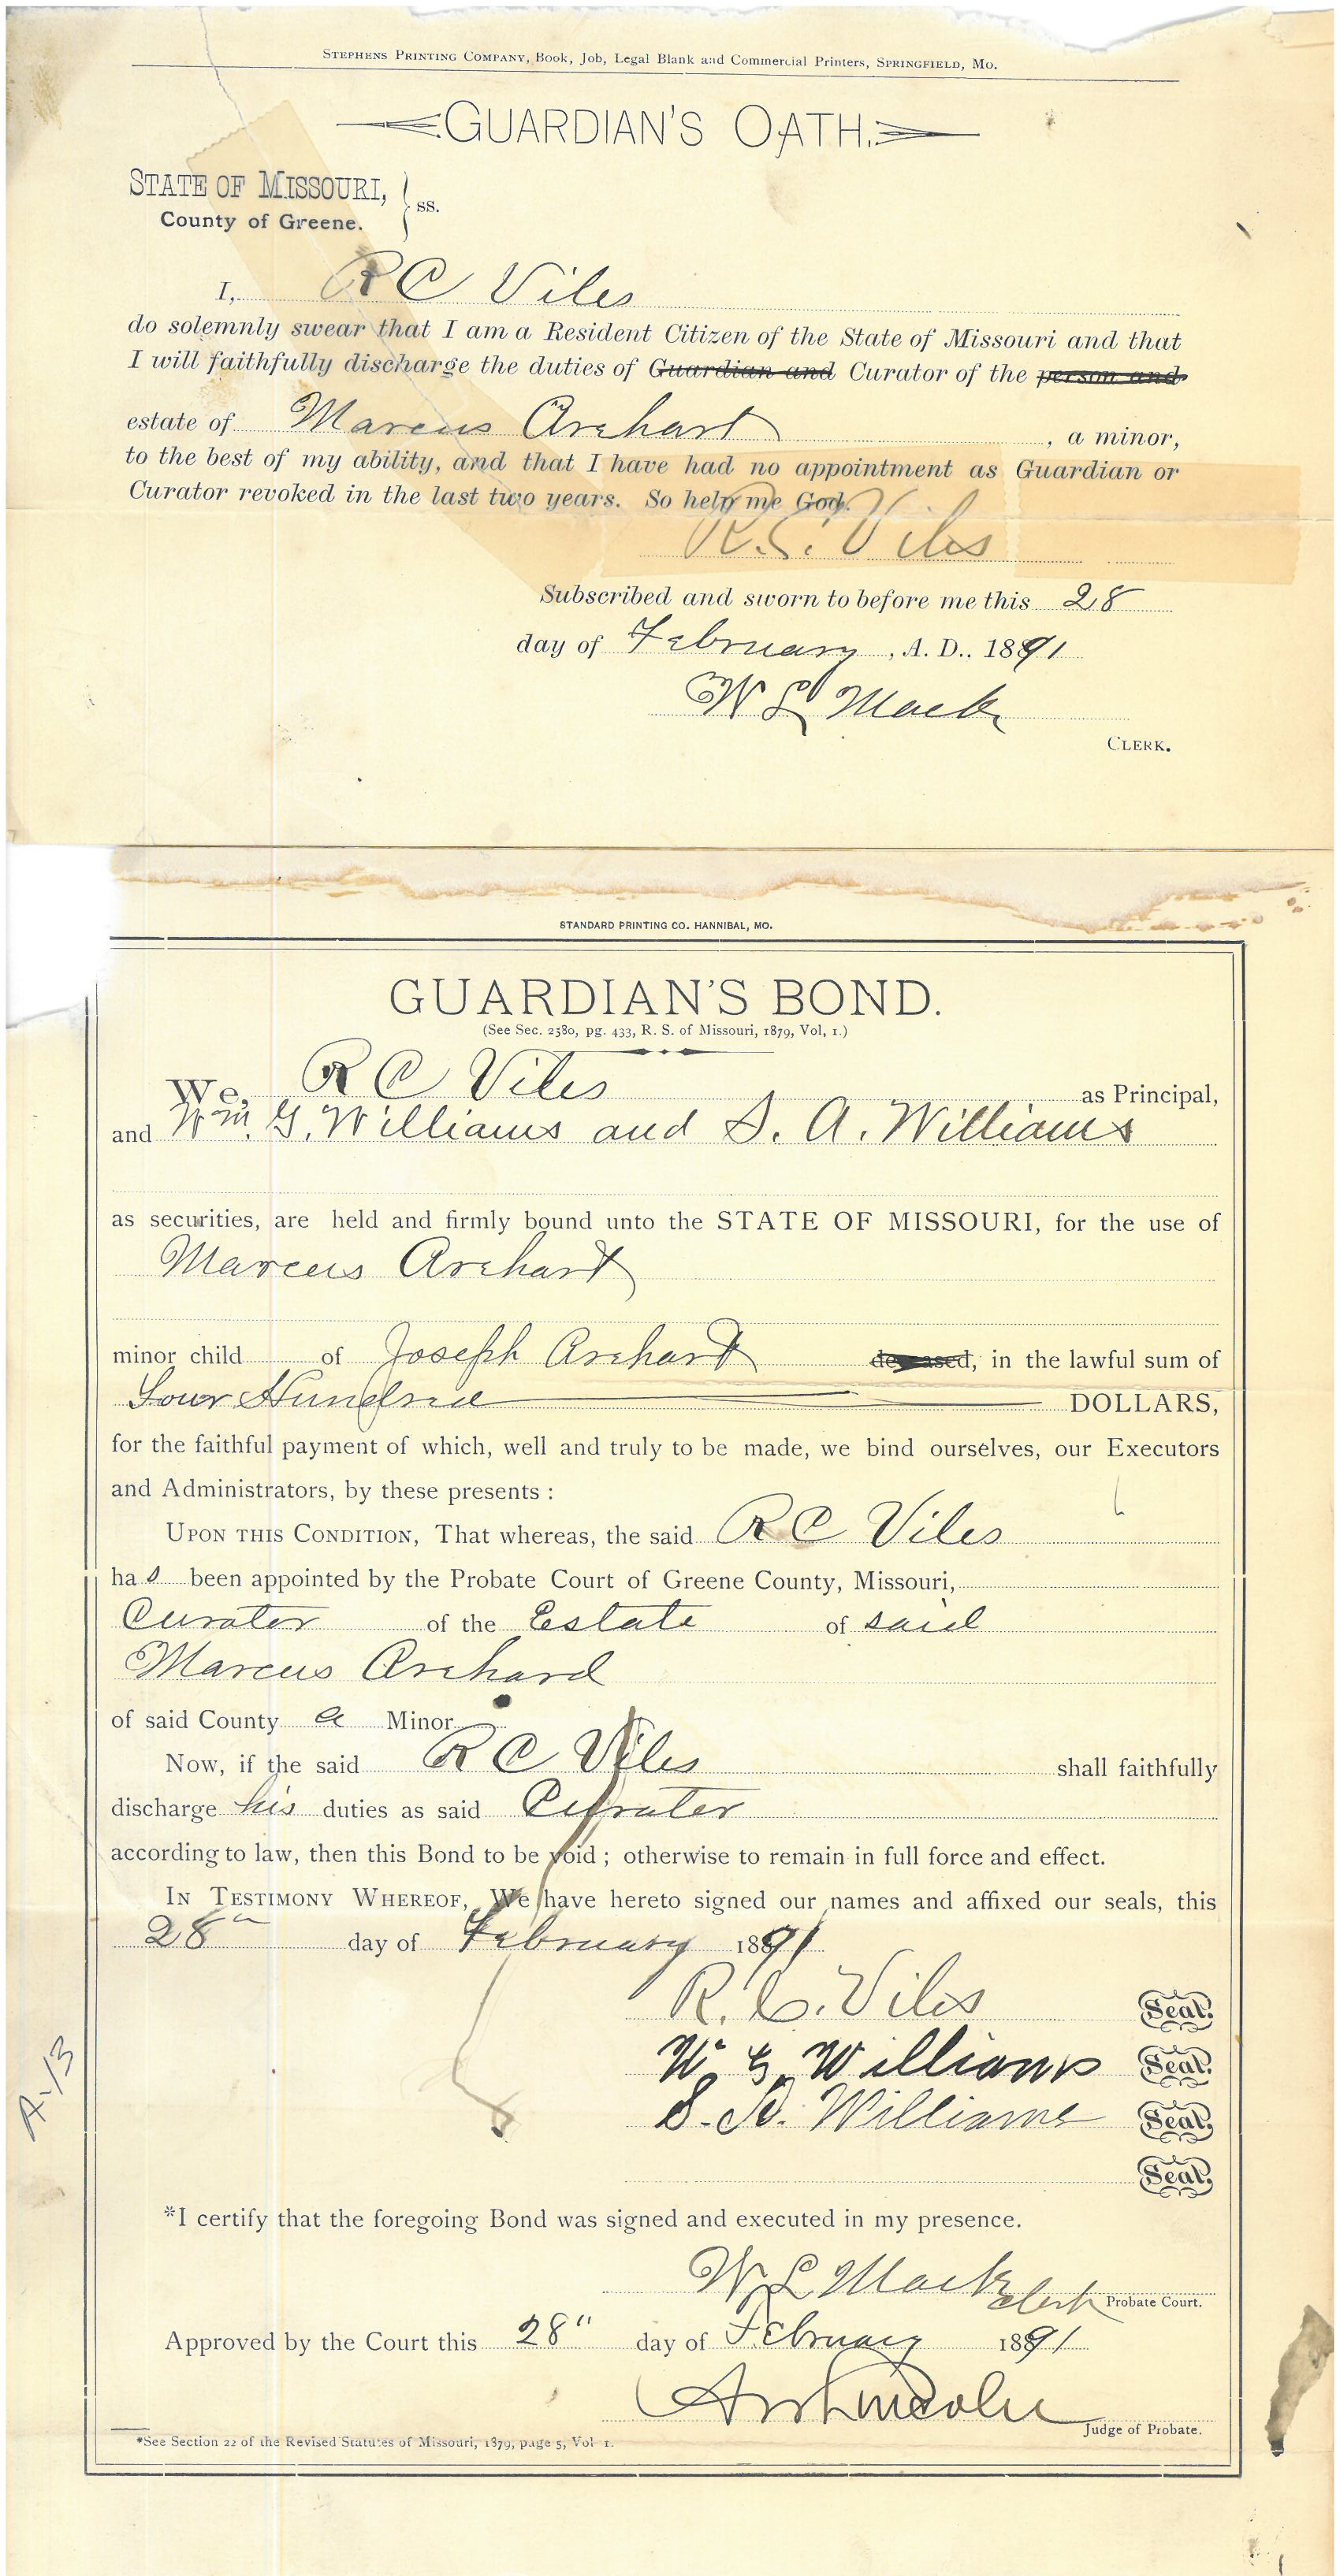 STEPHENS PRINTING COMPANY, Book, Job, Legal Blank and Commercial Printers, SPRINGFIELD, MO.
GUARDIAN'S OATH.
STATE OF MISSOURI,
County of Greene. } ss.
I, R C Viles
do solemnly swear that I am a Resident Citizen of the State of Missouri and that
I will faithfully discharge the duties of Guardian and Curator of the person and
estate of Marcus Archart, a minor,
to the best of my ability, and that I have had no appointment as Guardian or
Curator revoked in the last two years. So help me God.
R. C. Viles
Subscribed and sworn to before me this 28
day of February, A. D., 1891
W L Mack
CLERK.
STANDARD PRINTING CO. HANNIBAL, MO.
GUARDIAN'S BOND.
(See Sec. 2580, pg. 433, R. S. of Missouri, 1879, Vol, 1.)
We, R C Viles as Principal,
and Wm. G. Williams and S. A. Williams
as securities, are held and firmly bound unto the STATE OF MISSOURI, for the use of
Marcus Archart
minor child of Joseph Archart deceased, in the lawful sum of
Four Hundred DOLLARS,
for the faithful payment of which, well and truly to be made, we bind ourselves, our Executors
and Administrators, by these presents :
UPON THIS CONDITION, That whereas, the said R C Viles
has been appointed by the Probate Court of Greene County, Missouri,
Curator of the Estate of said
Marcus Archard
of said County a Minor
Now, if the said R C Viles shall faithfully
discharge his duties as said Curator
according to law, then this Bond to be void ; otherwise to remain in full force and effect.
IN TESTIMONY WHEREOF, We have hereto signed our names and affixed our seals, this
28" day of February 1891
R. C. Viles Seal.
W G Williams Seal.
S. A. Williams Seal.
Seal.
A-13
*I certify that the foregoing Bond was signed and executed in my presence.
W L Mack clerk Probate Court.
Approved by the Court this 28" day of February 1891
Lincoln
Judge of Probate.
*See Section 22 of the Revised Statutes of Missouri, 1879, page 5, Vol 1.